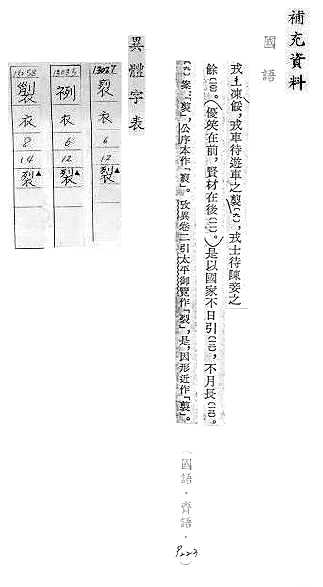 補充資料
國語
戎士凍餒,戎車待遊車之(九),戎士待陳妾之
餘(一〇)。優笑在前,賢材在後(一一)。是以國家不日引(一二),不月長(一三)。
〔九〕案:「」,公序本作「」。攷異卷二引太平御覽作「裂」,是,因形近作「」。
(國語・齊語・P223)
異體字表
13027 裂 衣 6 12 裂▲
13035 衣 6 12 裂▲
13058 衣 8 14 裂▲